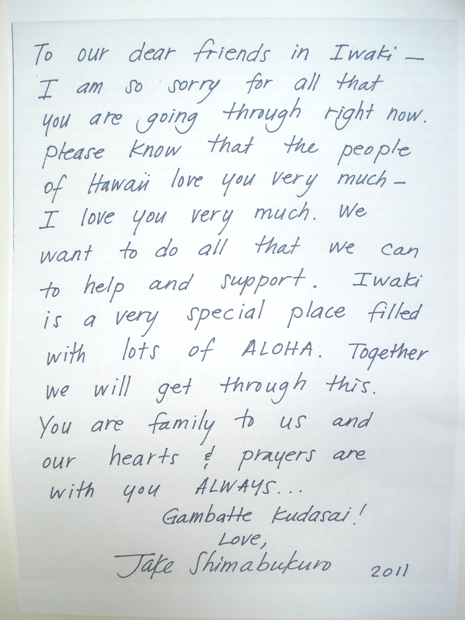 To our dear friends in Iwaki —
I am so sorry for all that
you are going through right now.
Please know that the people
of Hawaii love you very much —
I love you very much. We
want to do all that we can
to help and support. Iwaki
is a very special place filled
with lots of ALOHA. Together
we will get through this.
You are family to us and
our hearts & prayers are
with you ALWAYS...
Gambatte Kudasai!
Love,
Jake Shimabukuro 2011